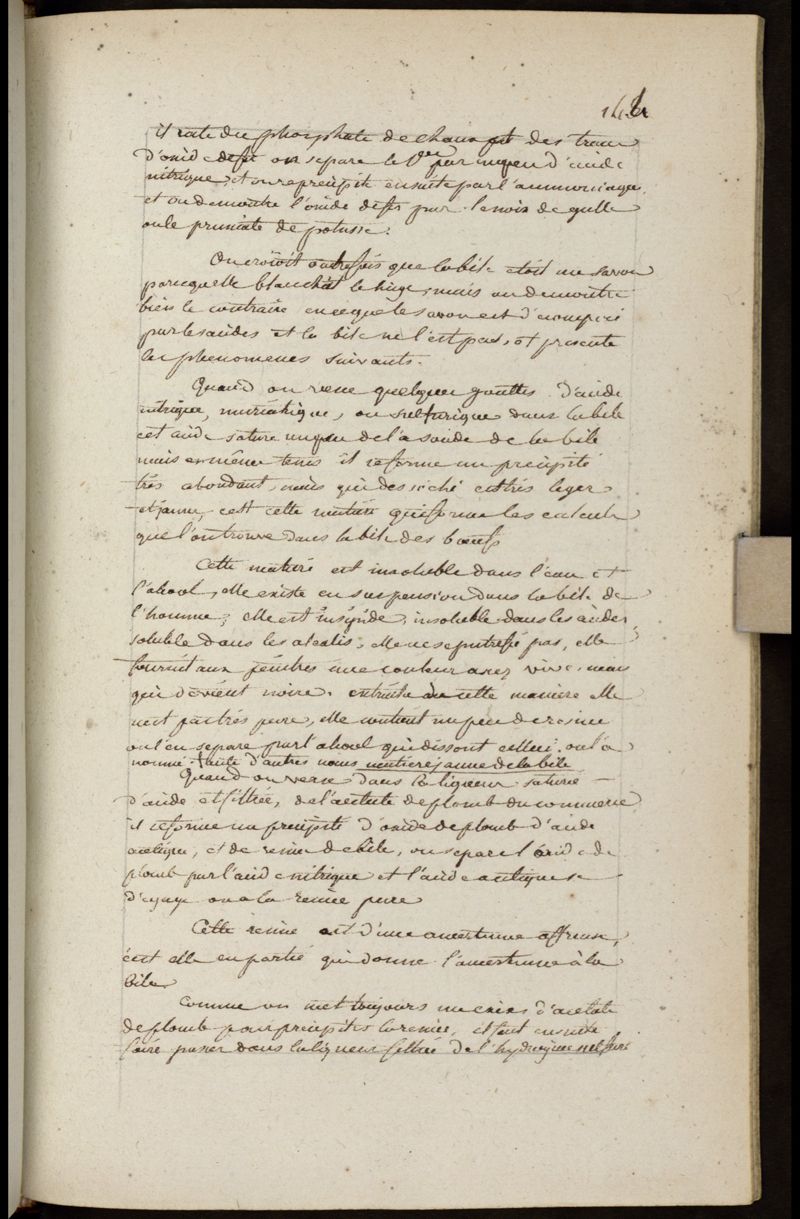 il reste du phosphate de chaux et des traces
d'oxide de fer on separe le 1er par moyen d'acide
nitrique, et on reprecipite ensuite par l'ammoniaque
et on demontre l'oxide de fer par la noix de galle
ou le prussiate de potasse.
On croioit autrefois que la bile etoit un savon
parcequ'elle blanchit le linge, mais on demontre
bien le contraire en ce que le savon est decomposé
par les acides et la bile ne l'est pas, et presente
les phenomenes suivants.
Quand on verse quelques gouttes d'acide
nitrique, muriatique, ou sulfurique dans la bile
cet acide sature un peu de la soude de la bile
mais en même tems il se forme un precipité
très abondant, mais qui desséché est très leger
et jaune, c'est cette matiere qui forme les calculs
que l'on trouve dans la bile des bœufs
Cette matiere est insoluble dans l'eau et
l'alcool, elle existe en suspension dans la bile de
l'homme; elle est insipide, insoluble dans les acides,
soluble dans les alcalis, elle ne se putrefie pas, elle
fournit aux peintres une couleur assez vive, mais
qui devient noire. extraite de cette maniere elle
n'est pas très pure, elle contient un peu de resine
on l'en separe par l'alcool qui dissout celleci. on l'a
nommé faute d'autres noms matiere jaune de la bile
Quand on verse dans la liqueur saturé
d'acide et filtrée, de l'acetate de plomb du commerce
il se forme un precipité d'oxide de plomb d'acide
acetique, et de resine de bile, on separe l'oxide de
plomb par l'acide nitrique et l'acide acetique se
degage on a la resine pure
Cette resine est d'une amertume affreuse,
c'est elle en partie qui donne l'amertume à la
bile
Comme on met toujours un exces d'acetate
de plomb pour precipiter la resine, il faut ensuite
faire passer dans la liqueur filtrée de l'hydrogene sulfuré